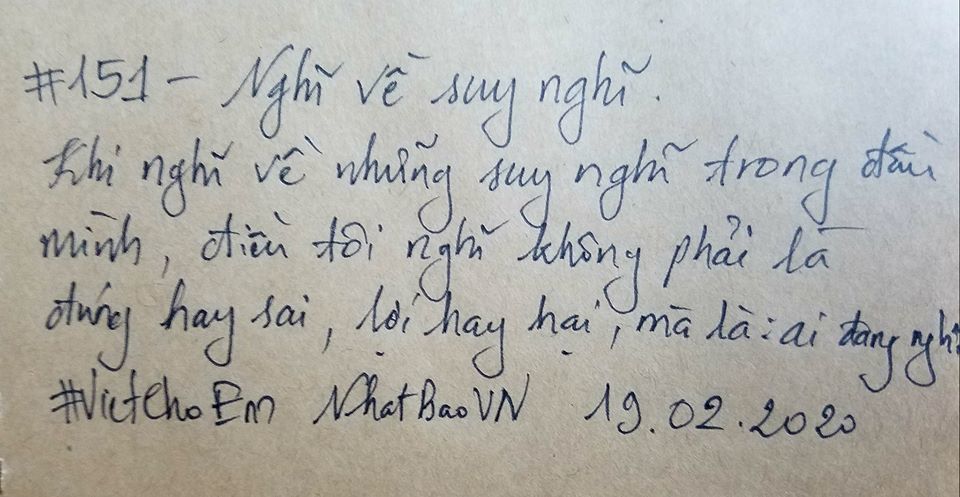 #151 - Nghĩ về suy nghĩ.
Khi nghĩ về những suy nghĩ trong đầu
mình, điều tôi nghĩ không phải là
đúng hay sai, lợi hay hại, mà là: ai đang nghĩ.
#VietChoEm NhatBaoVN 19.02.2020